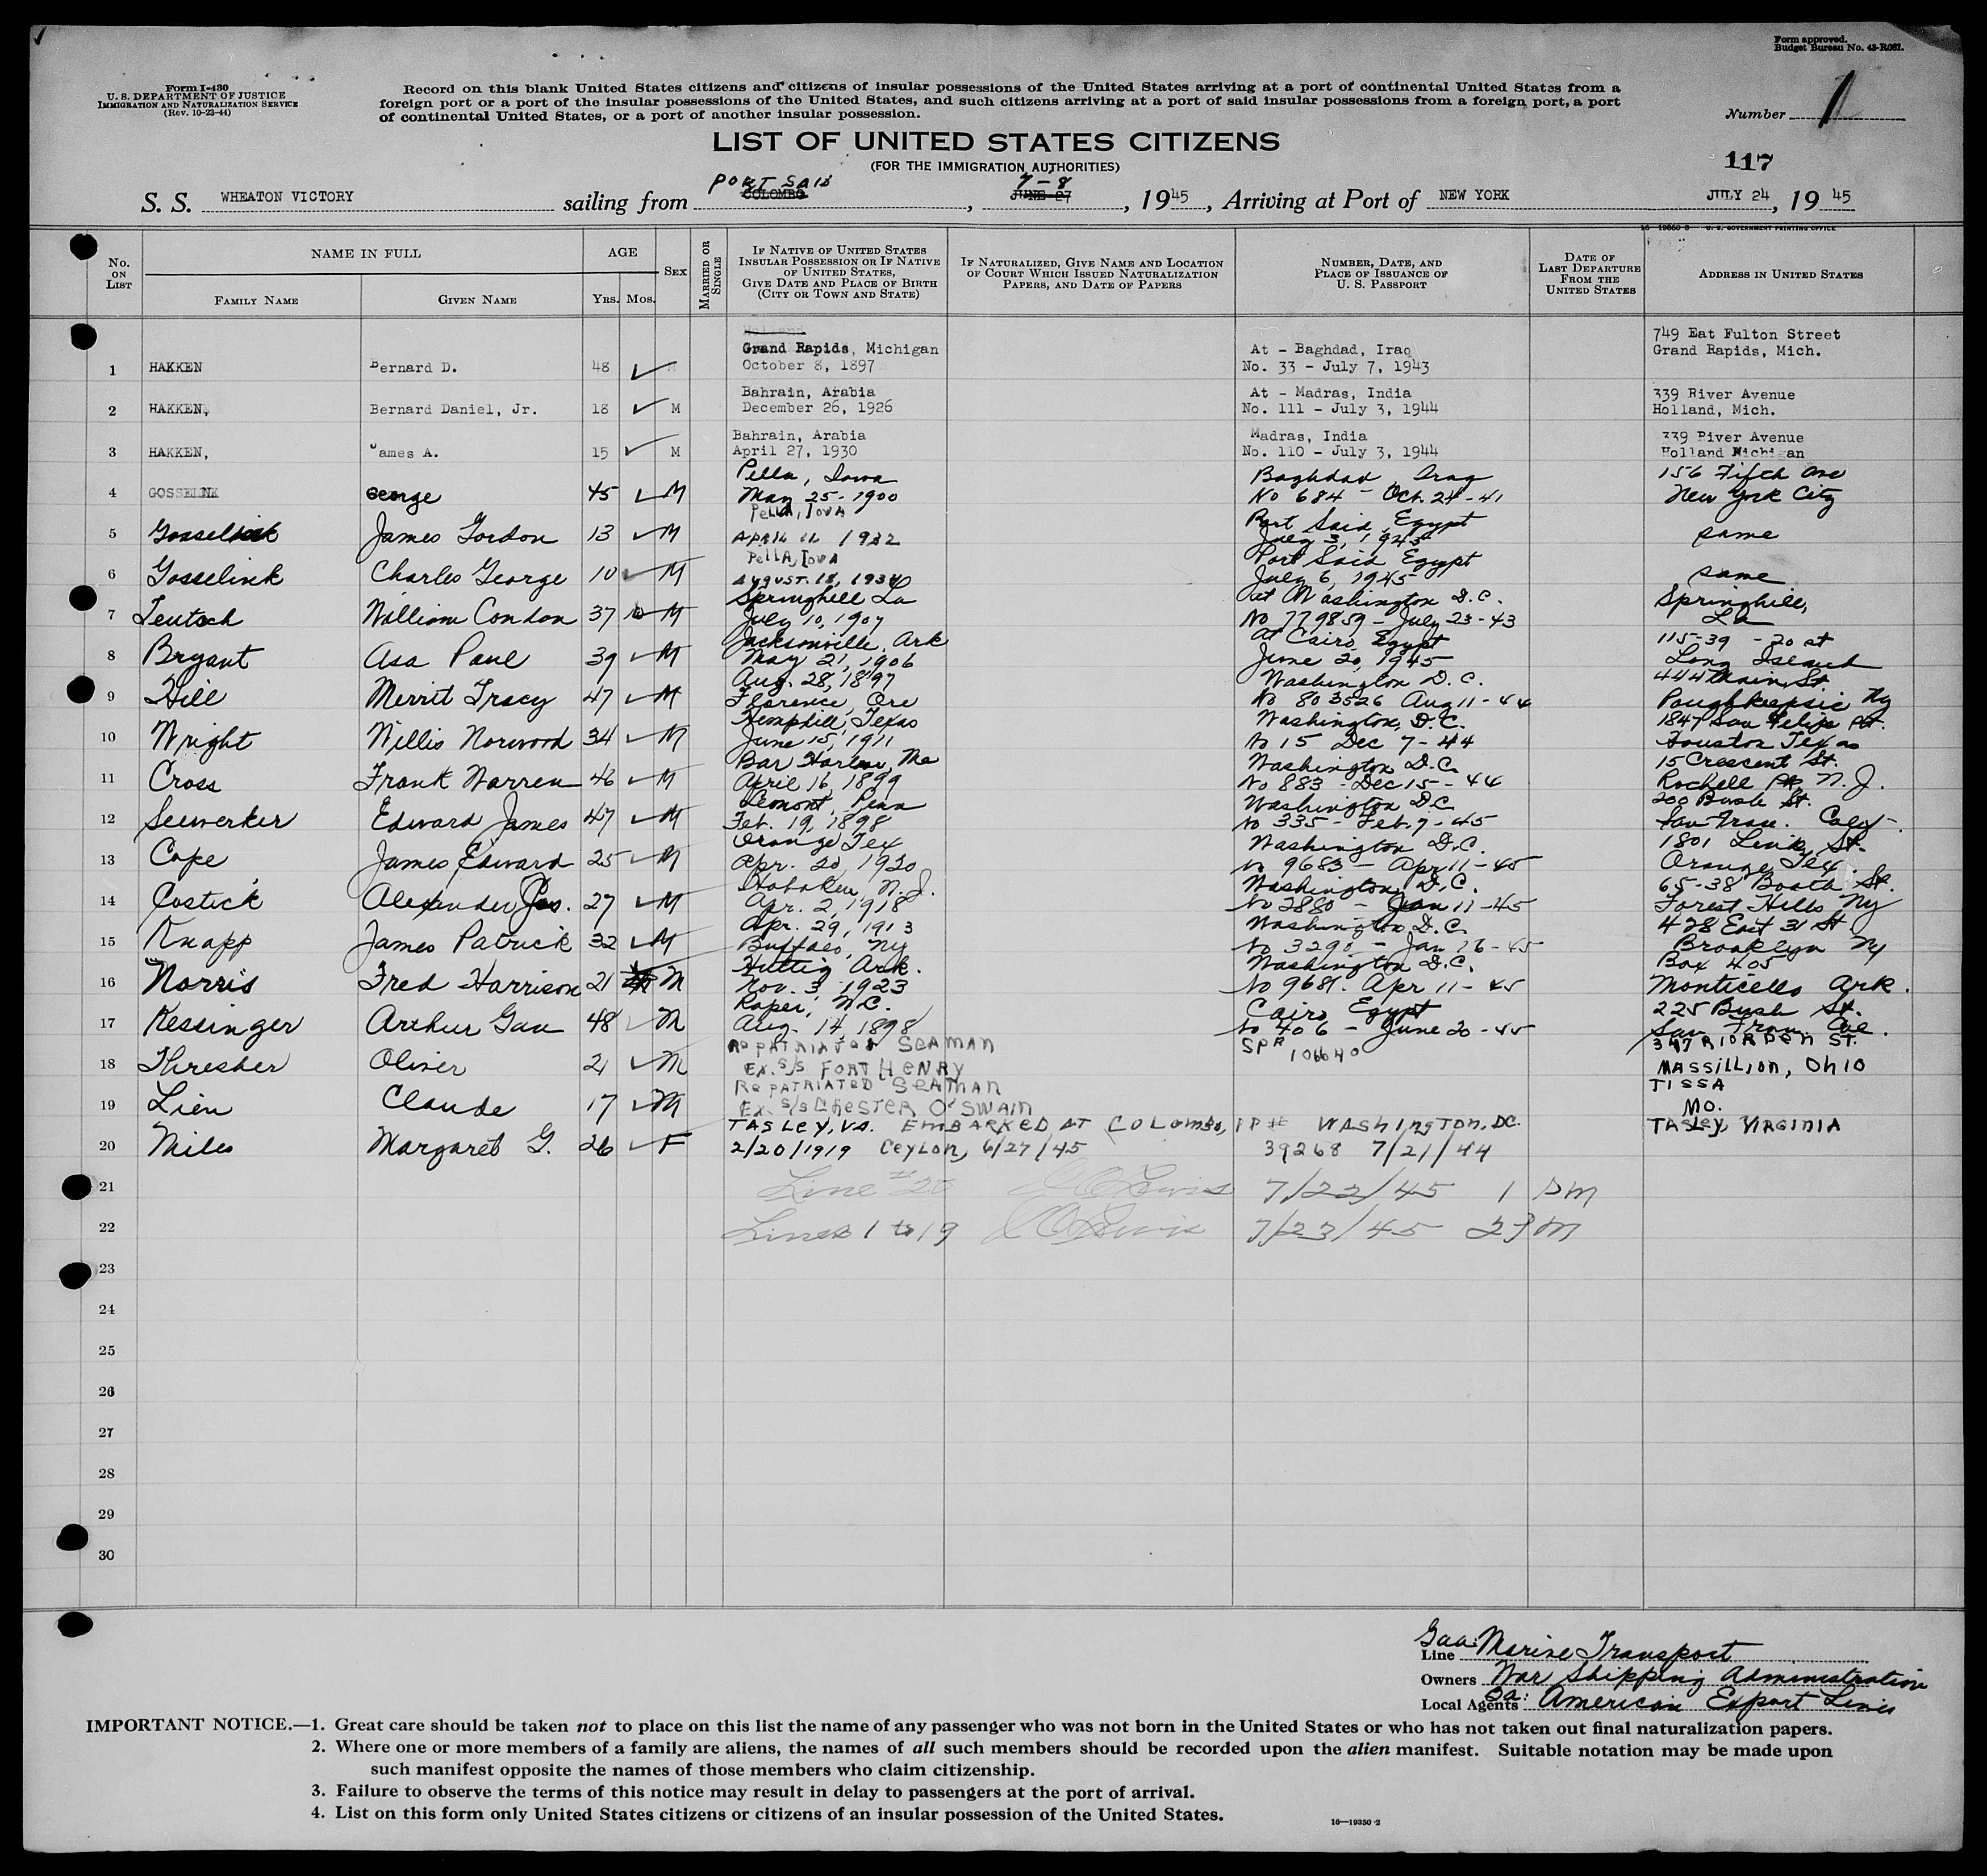 Form approved.
Budget Bureau No. 43-R061.
Form I-430
U. S. DEPARTMENT OF JUSTICE
IMMIGRATION AND NATURALIZATION SERVICE
(Rev. 10-23-44)
Record on this blank United States citizens and citizens of insular possessions of the United States arriving at a port of continental United States from a
foreign port or a port of the insular possessions of the United States, and such citizens arriving at a port of said insular possessions from a foreign port, a port
of continental United States, or a port of another insular possession.
Number 1
LIST OF UNITED STATES CITIZENS
(FOR THE IMMIGRATION AUTHORITIES)
117
PORT SAID 7-8
S. S. WHEATON VICTORY sailing from COLOMBO, JUNE 27, 1945, Arriving at Port of NEW YORK JULY 24, 1945
16-19350-2 U. S. GOVERNMENT PRINTING OFFICE
No. ON LIST
NAME IN FULL
FAMILY NAME
GIVEN NAME
AGE
Yrs. Mos.
SEX
MARRIED OR SINGLE
IF NATIVE OF UNITED STATES INSULAR POSSESSION OR IF NATIVE OF UNITED STATES, GIVE DATE AND PLACE OF BIRTH (CITY OR TOWN AND STATE)
IF NATURALIZED, GIVE NAME AND LOCATION OF COURT WHICH ISSUED NATURALIZATION PAPERS, AND DATE OF PAPERS
NUMBER, DATE, AND PLACE OF ISSUANCE OF U. S. PASSPORT
DATE OF LAST DEPARTURE FROM THE UNITED STATES
ADDRESS IN UNITED STATES
Holland
Grand Rapids, Michigan At - Baghdad, Iraq 749 Eat Fulton Street
1 HAKKEN Bernard D. 48 M October 8, 1897 No. 33 - July 7, 1943 Grand Rapids, Mich.
Bahrain, Arabia At - Madras, India 339 River Avenue
2 HAKKEN, Bernard Daniel, Jr. 18 M December 26, 1926 No. 111 - July 3, 1944 Holland, Mich.
Bahrain, Arabia Madras, India 339 River Avenue
3 HAKKEN, James A. 15 M April 27, 1930 No. 110 - July 3, 1944 Holland Michigan
Pella, Iowa Baghdad Iraq 156 Fifth Ave
4 GOSSELINK George 45 M May 25-1900 No 684 - Oct. 24-41 New York City
Pella, Iowa Port Said, Egypt
5 Gosselink James Gordon 13 M April 1932 July 3, 1945 same
Pella, Iowa Port Said Egypt
6 Gosselink Charles George 10 M August 18, 1934 July 6, 1945 same
Springhill La at Washington D.C. Springhill,
7 Teutsch William Condon 37 M July 10, 1907 No 779859 - July 23-43 La
Jacksonville, Ark at Cairo, Egypt 115-39 - 20 at
8 Bryant Asa Paul 39 M May 21, 1906 June 20, 1945 Long Island
Aug. 28, 1897 Washington D.C. 444 Main St
9 Hill Merrit Tracy 47 M Florence, Ore No 803526 Aug 11-44 Poughkeepsie Ny
Hemphill, Texas Washington, D.C. 1847 San Felipe
10 Wright Willis Norwood 34 M June 15, 1911 No 15 Dec 7-44 Houston Texas
Bar Harbor, Me Washington D.C. 15 Crescent St.
11 Cross Frank Warren 46 M April 16, 1899 No 883 - Dec 15-44 Rochell Pk N.J.
Lemont, Penn Washington D.C. 200 Bush St.
12 Seewerker Edward James 47 M Feb. 19, 1898 No 335 - Feb. 7-45 San Fran.
Orange Tex Washington D.C. 1801 Link St.
13 Cope James Edward 25 M Apr. 20, 1920 No 9683 - Apr 11-45 Orange Tex.
Hoboken, N.J. Washington, D.C. 65-38 Booth St.
14 Costick Alexander Jos. 27 M Apr. 2, 1918 No 2880 - Jan 11-45 Forest Hills Ny
Apr. 29, 1913 Washington D.C. 428 East 31 St
15 Knapp James Patrick 32 M Buffalo, Ny No 3290 - Jan 16-45 Brooklyn Ny
Huttig Ark. Washington D.C. Box 405
16 Norris Fred Harrison 21 M Nov. 3, 1923 No 9681. Apr 11-45 Monticello Ark.
Roper, N.C. Cairo, Egypt 225 Bush St.
17 Kessinger Arthur Gau 48 M Aug. 14, 1898 No 406 - June 20-45 San Fran. Cal.
REPATRIATED SEAMAN SPR 106640 347 RIORDEN ST.
18 Thresher Oliver 21 M EX. S/S FORT HENRY MASSILLION, OHIO
REPATRIATED SEAMAN TISSA
19 Lien Claude 17 M EX S/S CHESTER O' SWAIN MO.
TASLEY, VA. EMBARKED AT COLOMBO, PP# WASHINGTON, DC. TASLEY, VIRGINIA
20 Miles Margaret G. 26 F 2/20/1919 CEYLON, 6/27/45 39268 7/21/44
21 Line #20 Lewis 7/22/45 1 PM
22 Lines 1 to 19 Lewis 7/23/45 2 PM
23
24
25
26
27
28
29
30
Line Marine Transport
Owners War Shipping Administration
Local Agents American Export Lines
IMPORTANT NOTICE.—1. Great care should be taken not to place on this list the name of any passenger who was not born in the United States or who has not taken out final naturalization papers.
2. Where one or more members of a family are aliens, the names of all such members should be recorded upon the alien manifest. Suitable notation may be made upon
such manifest opposite the names of those members who claim citizenship.
3. Failure to observe the terms of this notice may result in delay to passengers at the port of arrival.
4. List on this form only United States citizens or citizens of an insular possession of the United States.
16—19350-2